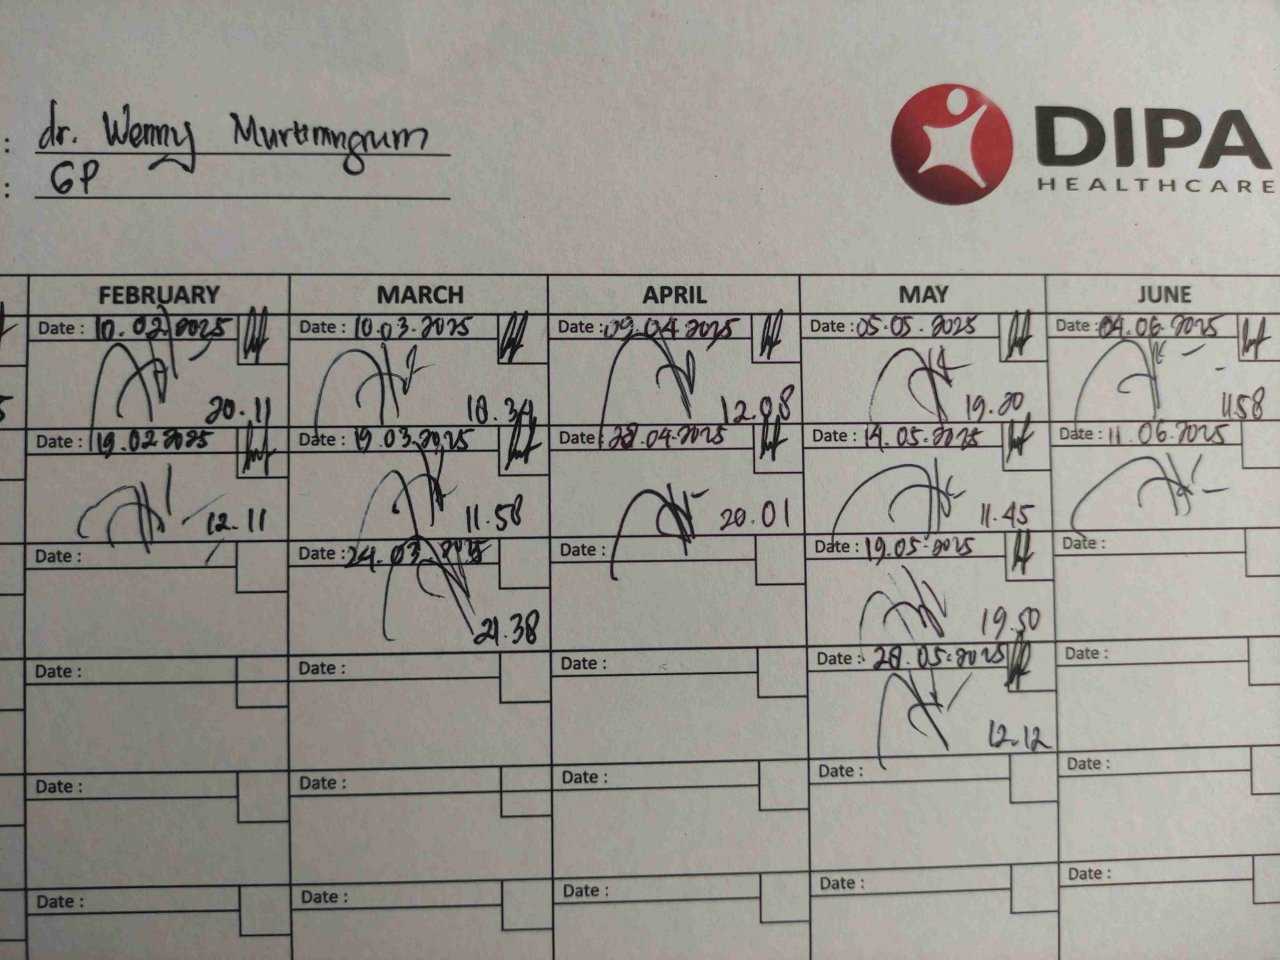 : dr. Wenny Murtiningrum
: GP
DIPA
HEALTHCARE
FEBRUARY MARCH APRIL MAY JUNE
Date : 10.02.2025 Date : 10.03.2025 Date : 09.04.2025 Date : 05.05.2025 Date : 04.06.2025
20.11 18.34 12.08 19.20 11.58
Date : 19.02.2025 Date : 19.03.2025 Date : 28.04.2025 Date : 14.05.2025 Date : 11.06.2025
12.11 11.58 20.01 11.45
Date : Date : 24.03.2025 Date : Date : 19.05.2025 Date :
21.38 19.50
Date : Date : Date : Date : 28.05.2025 Date :
12.12
Date : Date : Date : Date : Date :
Date : Date : Date : Date : Date :